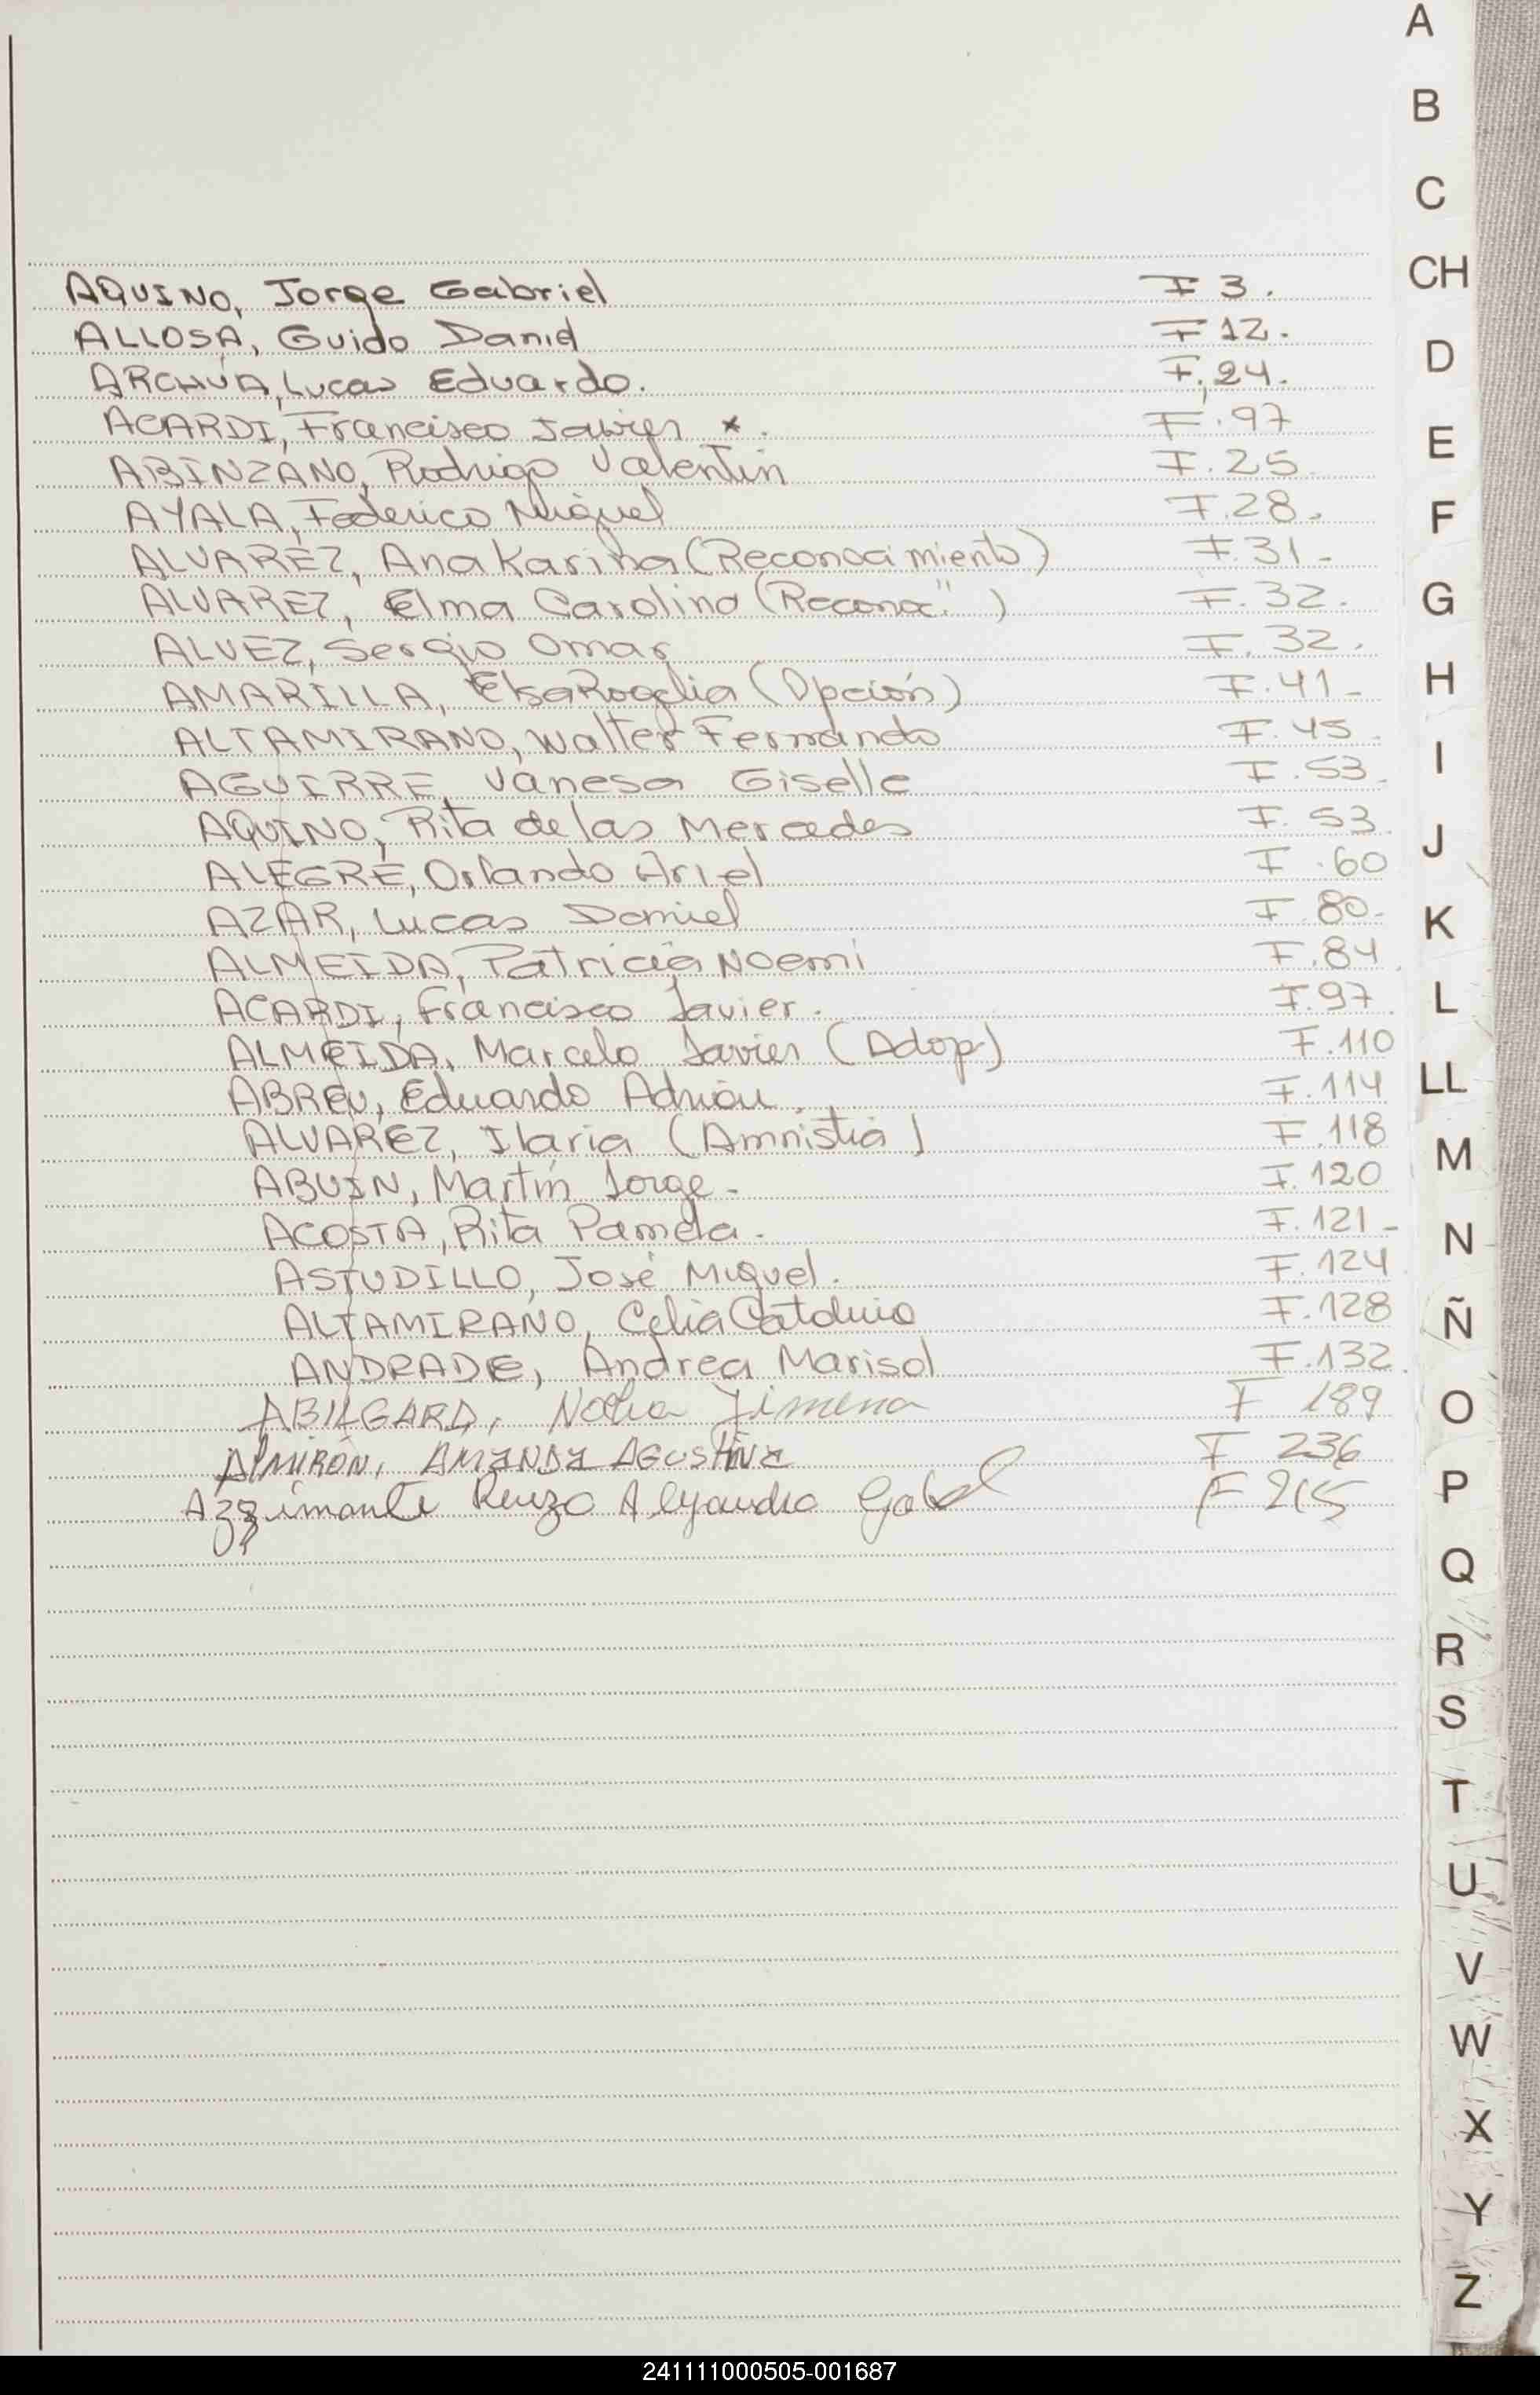 AQUINO, Jorge Gabriel F 3.
ALLOSA, Guido Daniel F 12.
ARCHÚA, Lucas Eduardo. F, 24.
ACARDI, Francisco Javier *. F. 97
ABINZANO, Rodrigo Valentín F. 25.
AYALA, Federico Miguel F. 28.
ALVAREZ, Ana Karina (Reconocimiento) F. 31-
ALVAREZ, Elma Carolina (Reconoc." ) F. 32.
ALVEZ, Sergio Omar F. 32.
AMARILLA, Elsa Rogelia (Opción) F. 41-
ALTAMIRANO, Walter Fernando F. 45.
AGUIRRE, Vanesa Giselle F. 53.
AQUINO, Rita de las Mercedes F. 53.
ALEGRE, Orlando Ariel F .60
AZAR, Lucas Daniel F. 80.
ALMEIDA, Patricia Noemi F. 84.
ACARDI, Francisco Javier. F. 97.
ALMEIDA, Marcelo Javier (Adop) F. 110
ABREU, Eduardo Adrián. F. 114
ALVAREZ, Ilaria (Amnistía) F. 118
ABUIN, Martín Jorge- F. 120
ACOSTA, Rita Pamela. F. 121-
ASTUDILLO, José Miguel. F. 124.
ALTAMIRANO, Celia F. 128
ANDRADE, Andrea Marisol F. 132.
ABILGARD, Jimena F 189
ALMIRÓN, AMANDA AGUSTINA F 236
Azzimonti Renzo Alejandro Gabriel F 265
A
B
C
CH
D
E
F
G
H
I
J
K
L
LL
M
N
Ñ
O
P
Q
R
S
T
U
V
W
X
Y
Z
241111000505-001687